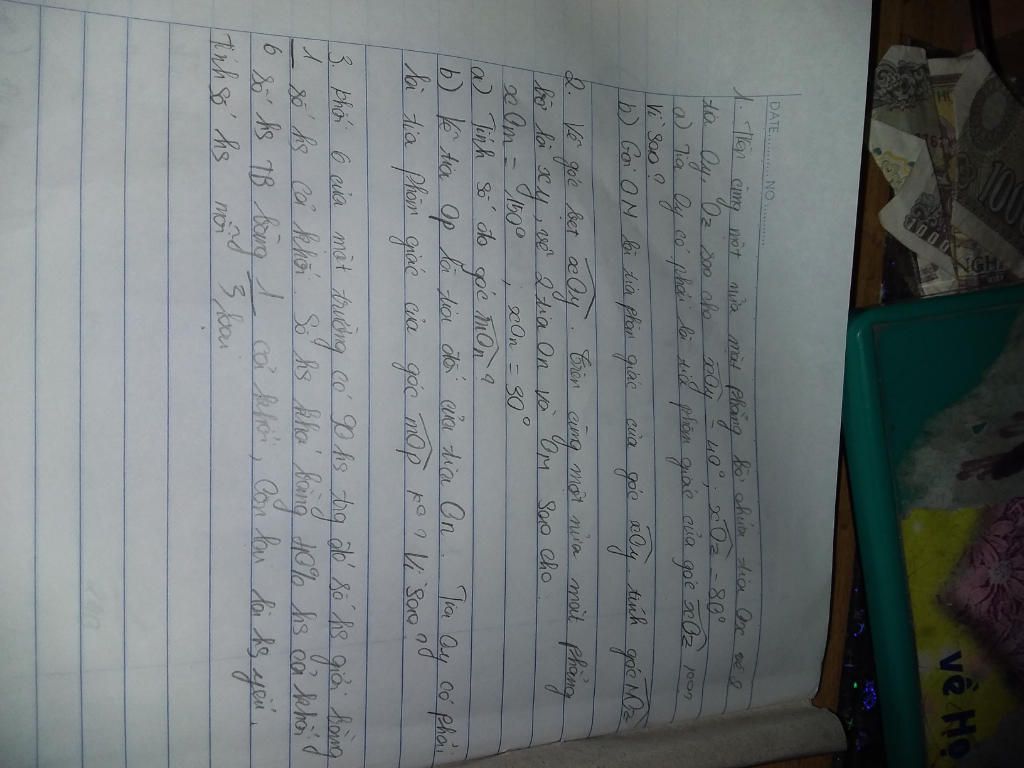 DATE............NO............
1. Trên cùng một nửa mặt phẳng bờ chứa tia Ox vẽ 2
tia Oy, Oz sao cho xOy = 40°, xOz = 80°
a) Tia Oy có phải là tia phân giác của góc xOz
Vì sao?
b) Gọi OM là tia phân giác của góc xOy tính góc MOz
2. Vẽ góc bẹt xOy. Trên cùng một nửa mặt phẳng
bờ là xy, vẽ 2 tia On và OM sao cho
xOm = 150°, xOn = 30°
a) Tính số đo góc mOn?
b) Vẽ tia Op là tia đối của tia On. Tia Oy có phải
là tia phân giác của góc mOp ko? Vì sao?
3. Khối 6 của một trường có 90 hs trg đó số hs giỏi bằng
1/6 số hs cả khối. Số hs khá bằng 40% hs cả khối
số hs TB bằng 1 cả khối, còn lại là hs yếu.
Tính số hs mỗi loại
về Họ